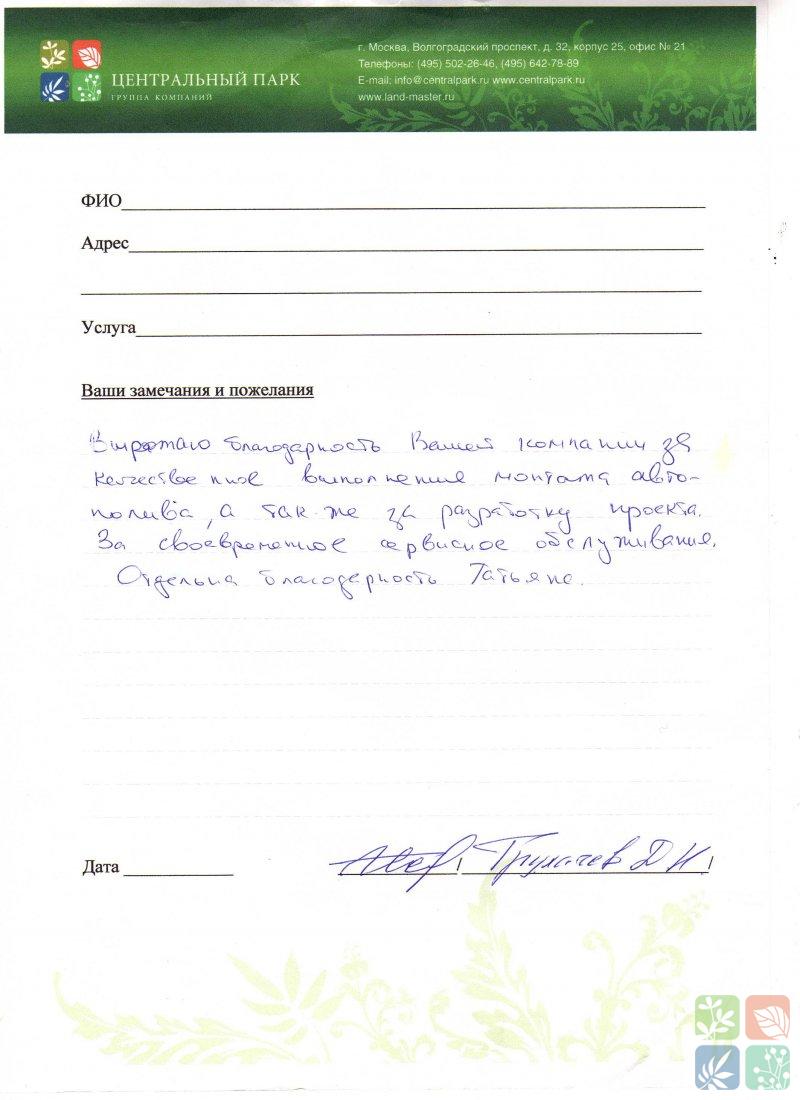 ЦЕНТРАЛЬНЫЙ ПАРК
ГРУППА КОМПАНИЙ
г. Москва, Волгоградский проспект, д. 32, корпус 25, офис № 21
Телефоны: (495) 502-26-46, (495) 642-78-89
E-mail: info@centralpark.ru www.centralpark.ru
www.land-master.ru
ФИО
Адрес
Услуга
Ваши замечания и пожелания
благодарность Вашей компании за
выполнение монтажа авто-
полива, а так же за разработку проекта.
За своевременное сервисное обслуживание.
Отдельна благодарность Татьяне.
Дата
Д И.